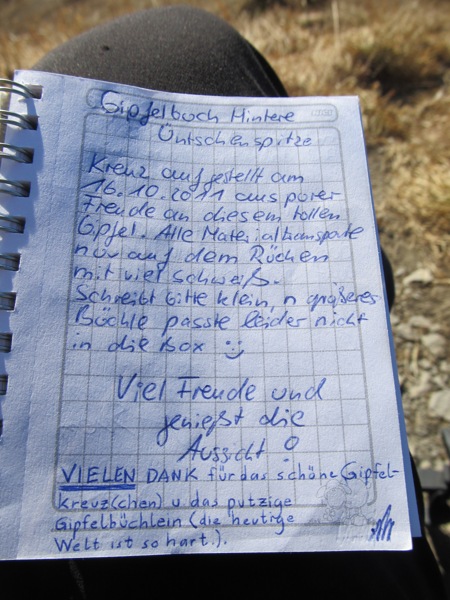 Gipfelbuch Hintere
Üntschenspitze
Kreuz aufgestellt am
16.10.2011 aus purer
Freude an diesem tollen
Gipfel. Alle Materialtransporte
nur auf dem Rücken
mit viel Schweiß.
Schreibt bitte klein, n größeres
Büchle passte leider nicht
in die Box :)
Viel Freude und
genießt die
Aussicht!
VIELEN DANK für das schöne Gipfel-
kreuz(chen) u. das putzige
Gipfelbüchlein (die heutige
Welt ist so hart.).